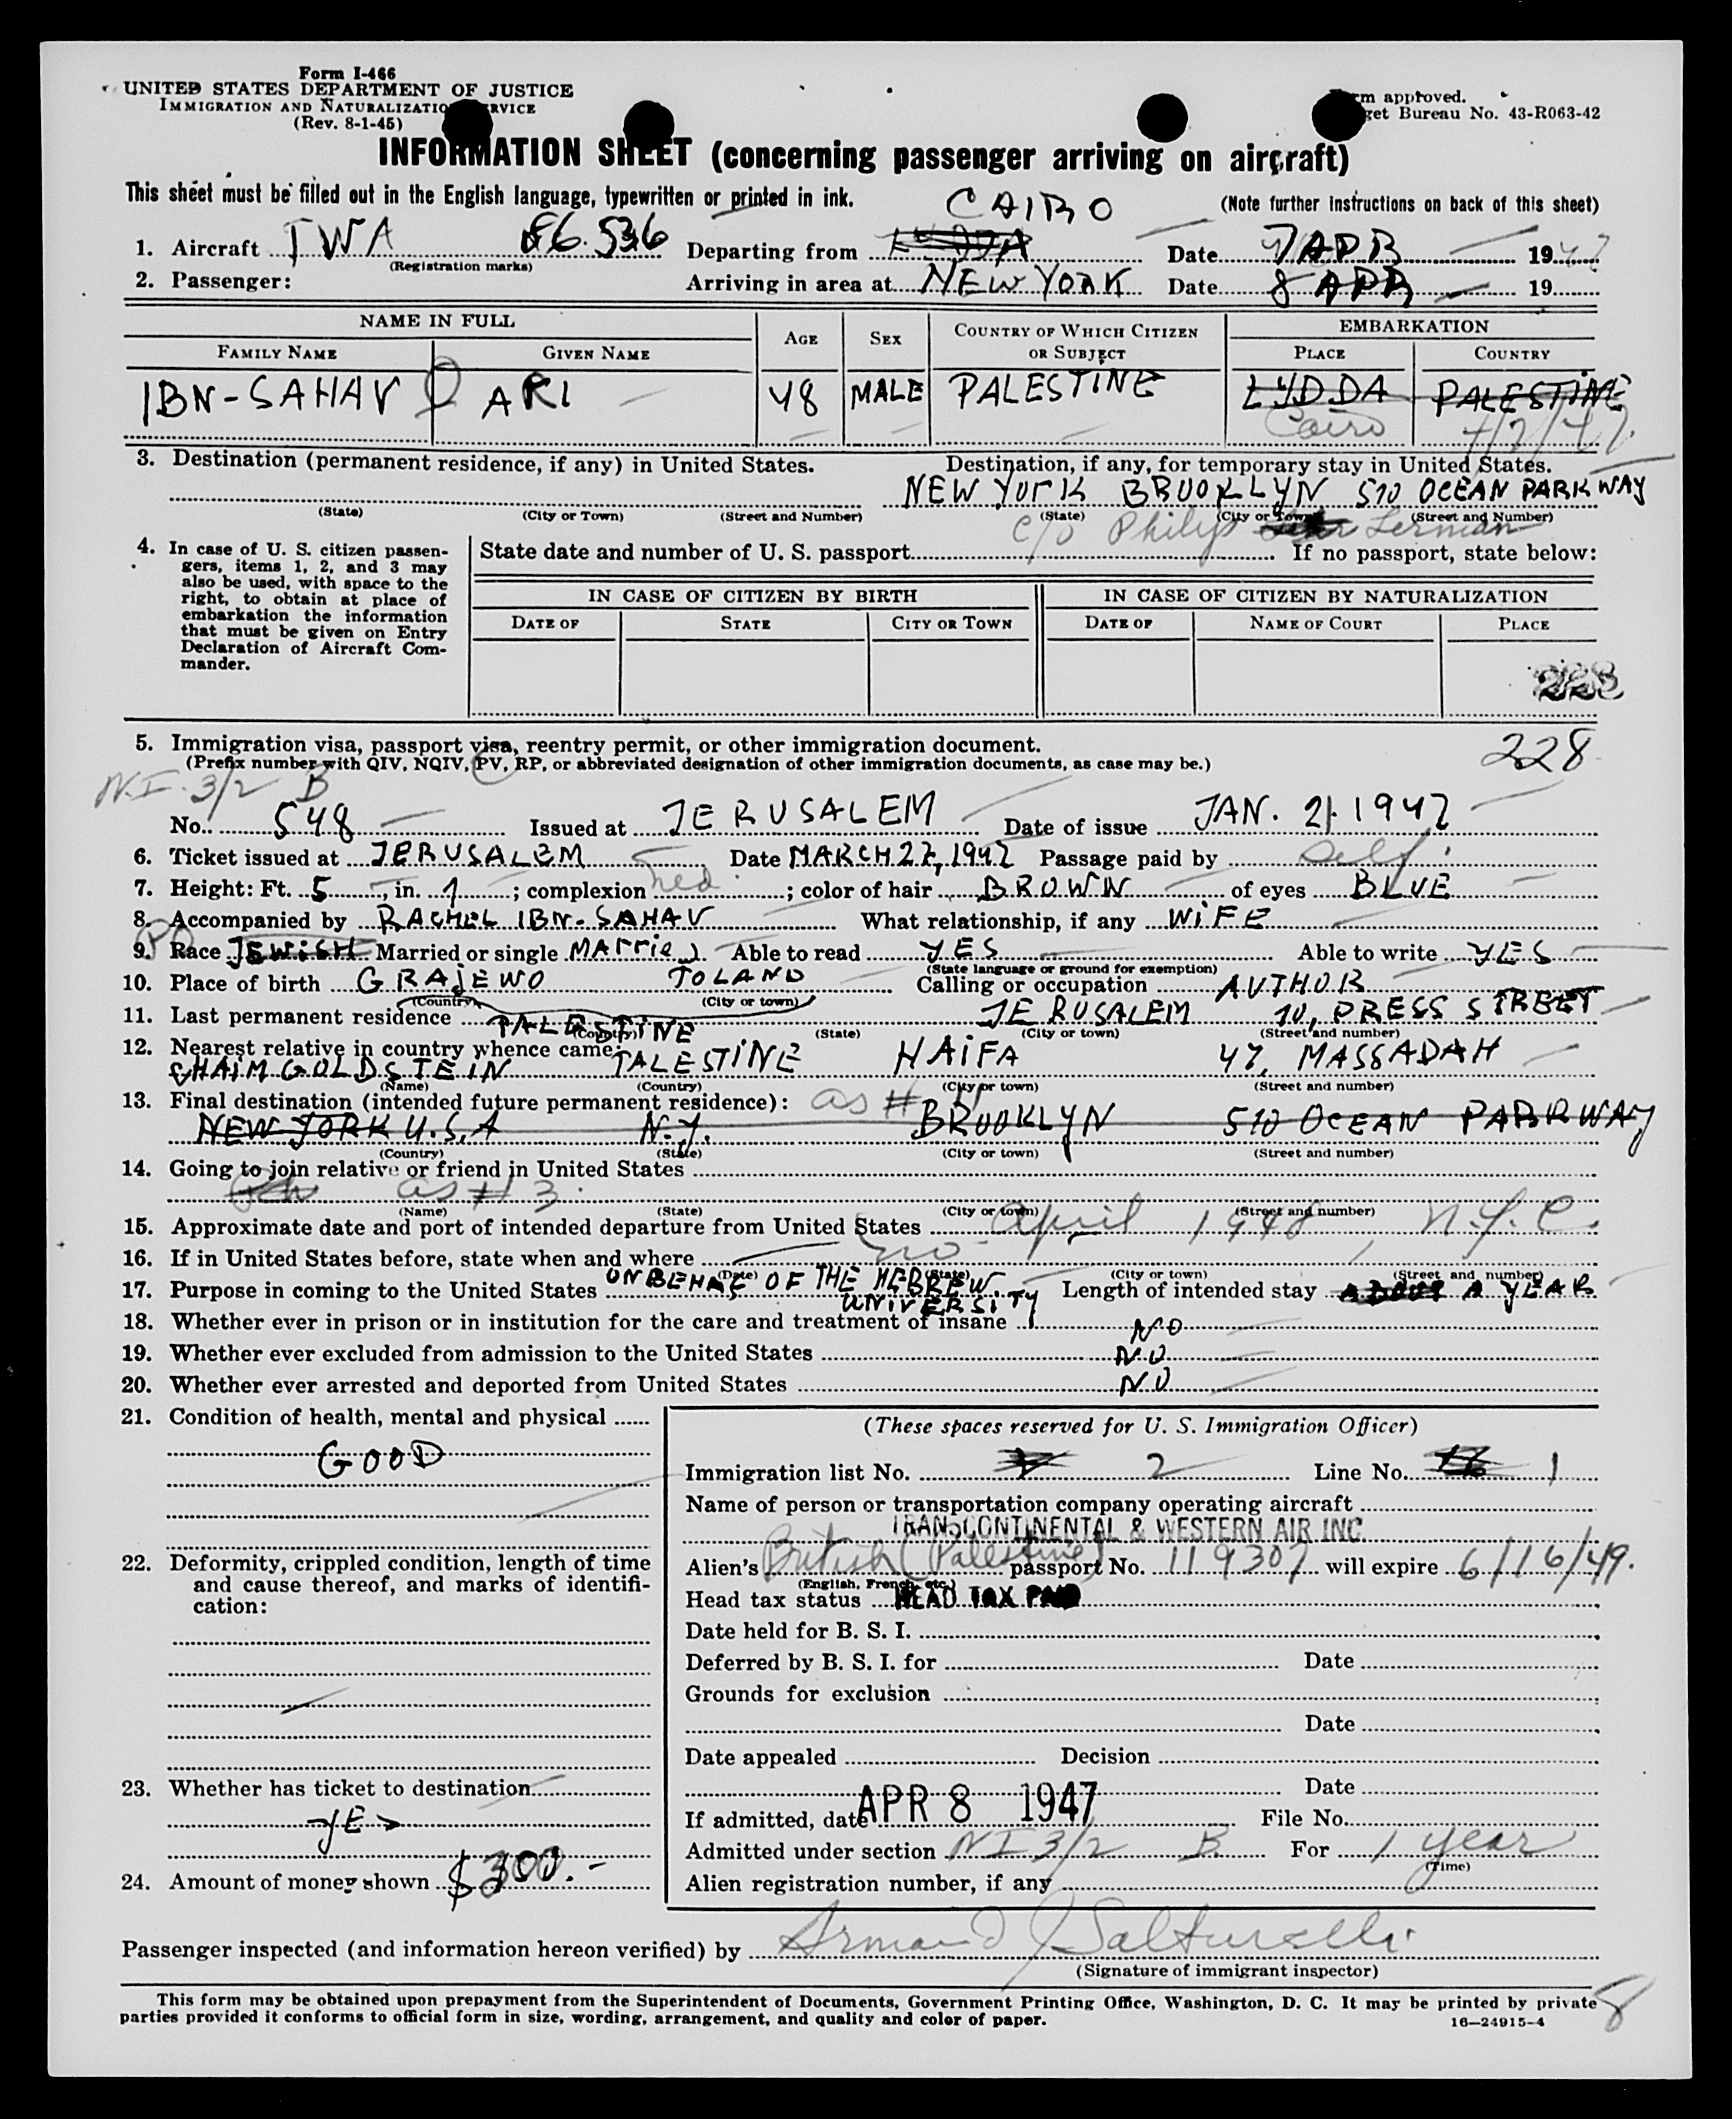 Form I-466
UNITED STATES DEPARTMENT OF JUSTICE
IMMIGRATION AND NATURALIZATION SERVICE
(Rev. 8-1-45)
Form approved.
Budget Bureau No. 43-R063-42
INFORMATION SHEET (concerning passenger arriving on aircraft)
This sheet must be filled out in the English language, typewritten or printed in ink.
(Note further instructions on back of this sheet)
CAIRO
1. Aircraft TWA 86.536 Departing from LYDDA Date 7 APR 1947
(Registration marks)
2. Passenger: Arriving in area at NEW YORK Date 8 APR 19
NAME IN FULL AGE SEX COUNTRY OF WHICH CITIZEN OR SUBJECT EMBARKATION
FAMILY NAME GIVEN NAME PLACE COUNTRY
IBN-SAHAV ARI 48 MALE PALESTINE LYDDA PALESTINE
Cairo 4/7/47.
3. Destination (permanent residence, if any) in United States. Destination, if any, for temporary stay in United States.
NEW YORK BROOKLYN 510 OCEAN PARKWAY
(State) (City or Town) (Street and Number) (State) (City or Town) (Street and Number)
c/o Philip Lerman
4. In case of U. S. citizen passengers, items 1, 2, and 3 may also be used, with space to the right, to obtain at place of embarkation the information that must be given on Entry Declaration of Aircraft Commander.
State date and number of U. S. passport If no passport, state below:
IN CASE OF CITIZEN BY BIRTH IN CASE OF CITIZEN BY NATURALIZATION
DATE OF STATE CITY OR TOWN DATE OF NAME OF COURT PLACE
228
5. Immigration visa, passport visa, reentry permit, or other immigration document.
(Prefix number with QIV, NQIV, PV, RP, or abbreviated designation of other immigration documents, as case may be.)
228
N.I. 3/2 B
No. 548 Issued at JERUSALEM Date of issue JAN. 21 1947
6. Ticket issued at JERUSALEM Date MARCH 27, 1947 Passage paid by Self
7. Height: Ft. 5, in. 7; complexion med; color of hair BROWN of eyes BLUE
8. Accompanied by RACHEL IBN-SAHAV What relationship, if any WIFE
9. Race JEWISH Married or single MARRIED Able to read YES Able to write YES
(State language or ground for exemption)
10. Place of birth GRAJEWO POLAND Calling or occupation AUTHOR
(Country) (City or town)
11. Last permanent residence PALESTINE JERUSALEM 10, PRESS STREET
(Country) (State) (City or town) (Street and number)
12. Nearest relative in country whence came:
CHAIM GOLDSTEIN PALESTINE HAIFA 47, MASSADAH
(Name) (Country) (City or town) (Street and number)
13. Final destination (intended future permanent residence): as #
NEW YORK U.S.A N.Y. BROOKLYN 510 OCEAN PARKWAY
(Country) (State) (City or town) (Street and number)
14. Going to join relative or friend in United States
as # 3
(Name) (State) (City or town) (Street and number)
15. Approximate date and port of intended departure from United States April 1948, N.Y.C.
16. If in United States before, state when and where no
(Date) (State) (City or town) (Street and number)
17. Purpose in coming to the United States ON BEHALF OF THE HEBREW UNIVERSITY Length of intended stay ABOUT A YEAR
18. Whether ever in prison or in institution for the care and treatment of insane NO
19. Whether ever excluded from admission to the United States NO
20. Whether ever arrested and deported from United States NO
21. Condition of health, mental and physical
GOOD
22. Deformity, crippled condition, length of time and cause thereof, and marks of identification:
23. Whether has ticket to destination
YES
24. Amount of money shown $300.-
(These spaces reserved for U. S. Immigration Officer)
Immigration list No. 2 Line No. 1
Name of person or transportation company operating aircraft
TRANSCONTINENTAL & WESTERN AIR INC.
Alien's British (Palestine) passport No. 119307 will expire 6/16/49.
(English, French, etc.)
Head tax status HEAD TAX PAID
Date held for B. S. I.
Deferred by B. S. I. for Date
Grounds for exclusion
Date
Date appealed Decision
Date
If admitted, date APR 8 1947 File No.
Admitted under section NI 3/2 B. For 1 year
(Time)
Alien registration number, if any
Passenger inspected (and information hereon verified) by Armand J
(Signature of immigrant inspector)
This form may be obtained upon prepayment from the Superintendent of Documents, Government Printing Office, Washington, D. C. It may be printed by private
parties provided it conforms to official form in size, wording, arrangement, and quality and color of paper.
16—24915-4
8